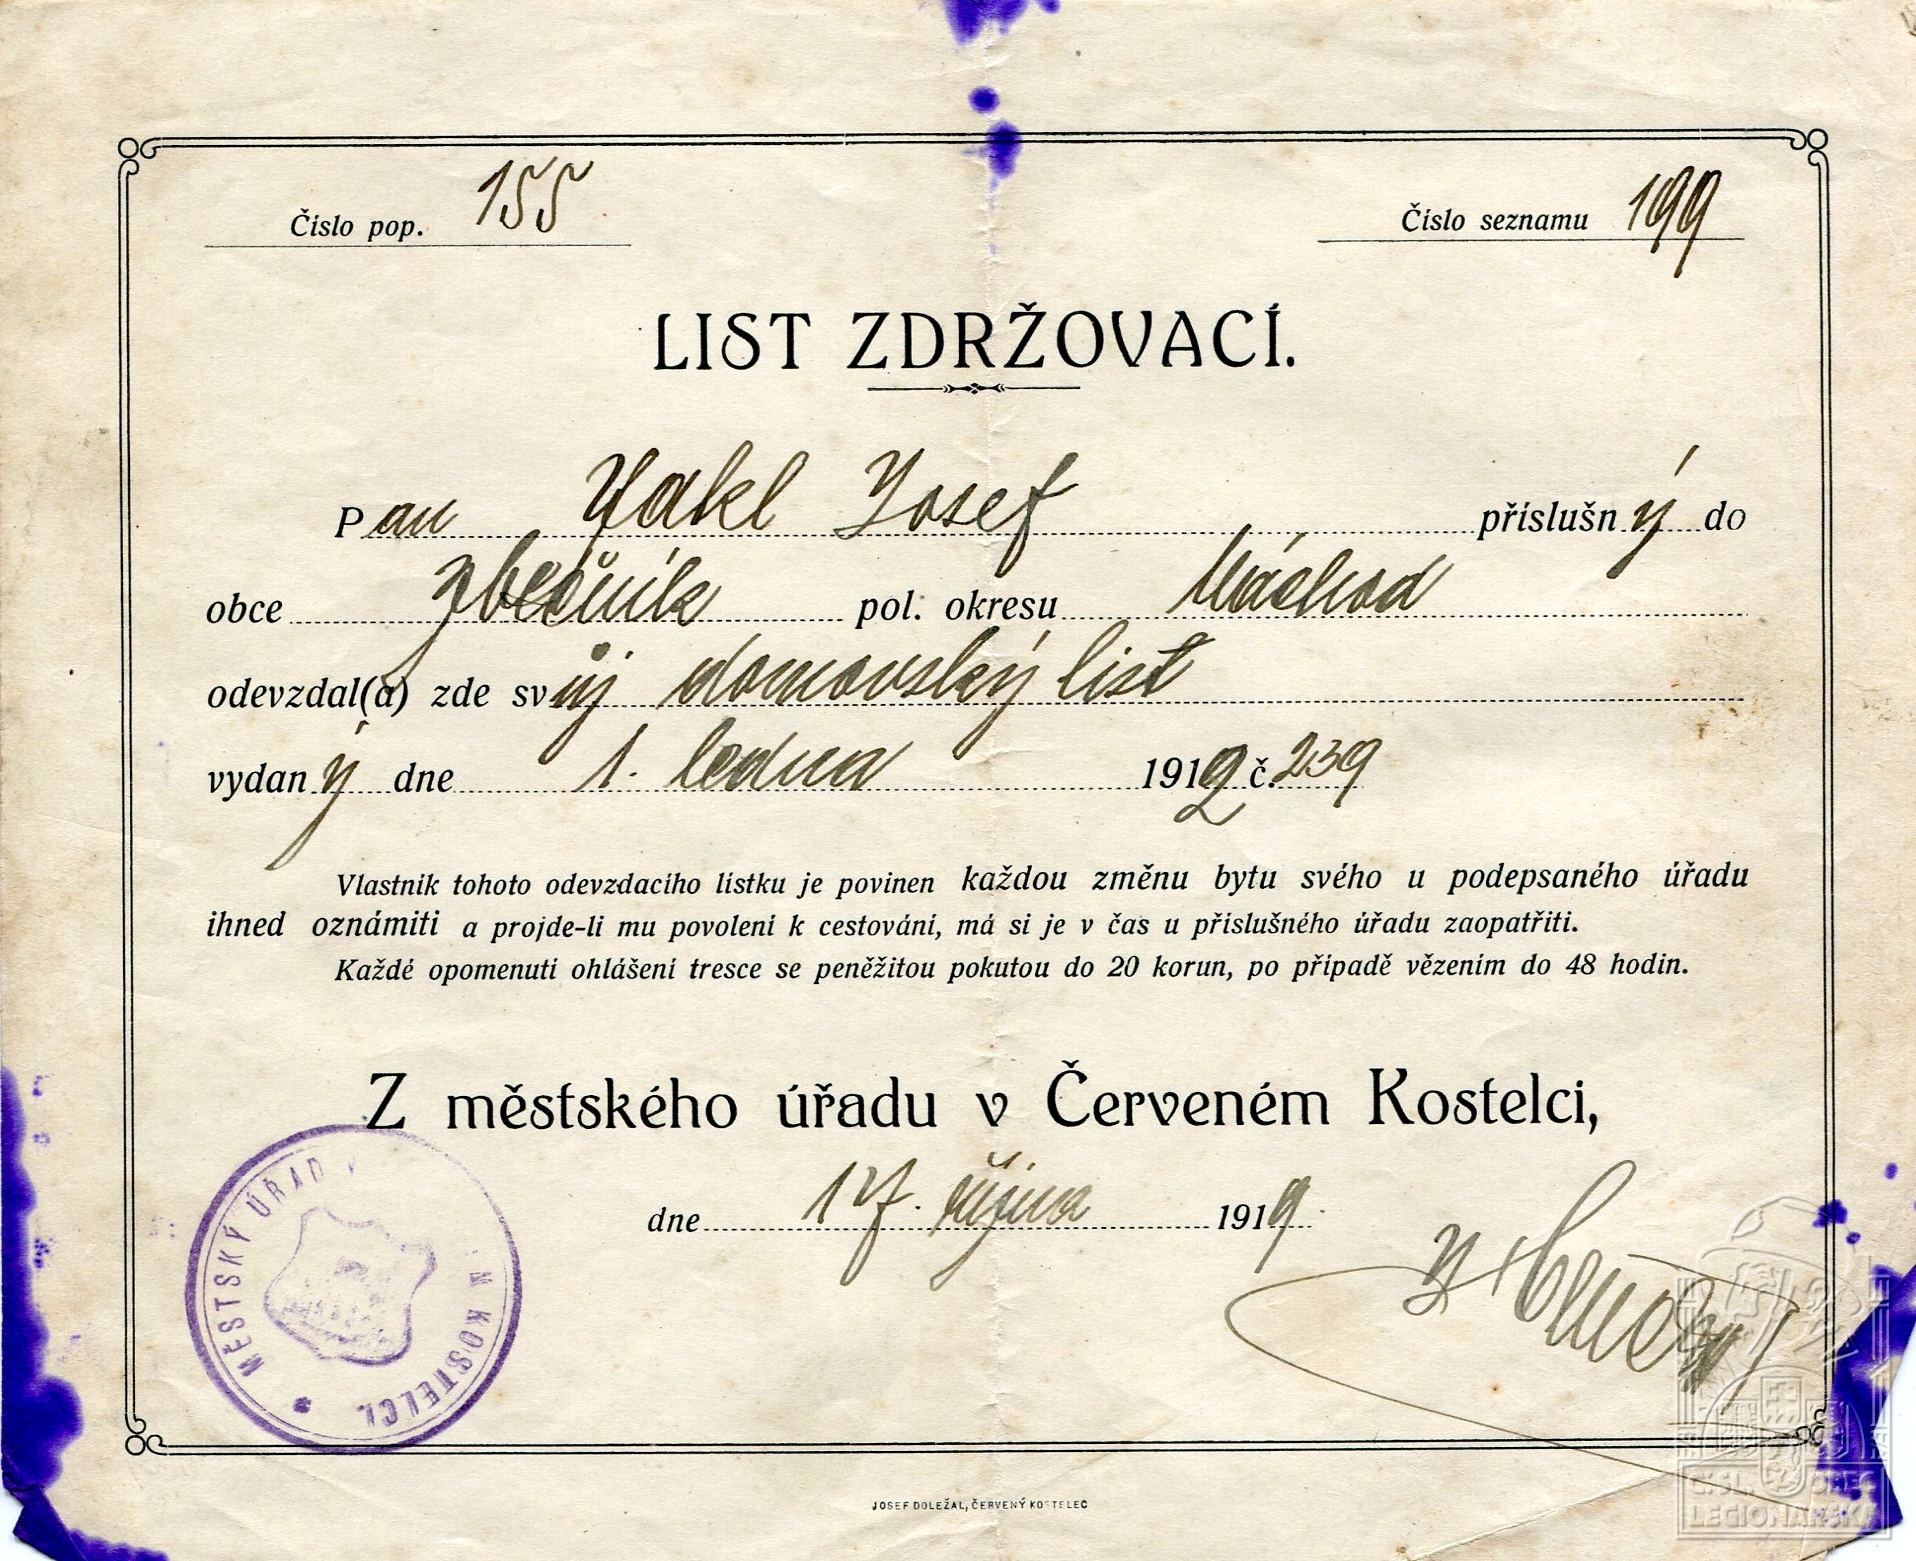 Číslo pop. 155
Číslo seznamu 199
LIST ZDRŽOVACÍ.
Pan Jakl Josef příslušný do
obce Zbečník pol. okresu Náchod
odevzdal(a) zde svůj domovský list
vydaný dne 1. ledna 1912 č. 239
Vlastník tohoto odevzdacího lístku je povinen každou změnu bytu svého u podepsaného úřadu
ihned oznámiti a projde-li mu povolení k cestování, má si je v čas u příslušného úřadu zaopatřiti.
Každé opomenutí ohlášení tresce se peněžitou pokutou do 20 korun, po případě vězením do 48 hodin.
Z městského úřadu v Červeném Kostelci,
dne 17. října 1919.
MĚSTSKÝ ÚŘAD V KOSTELCI.
JOSEF DOLEŽAL, ČERVENÝ KOSTELEC
Č.SL. OBEC
LEGIONÁŘSKÁ